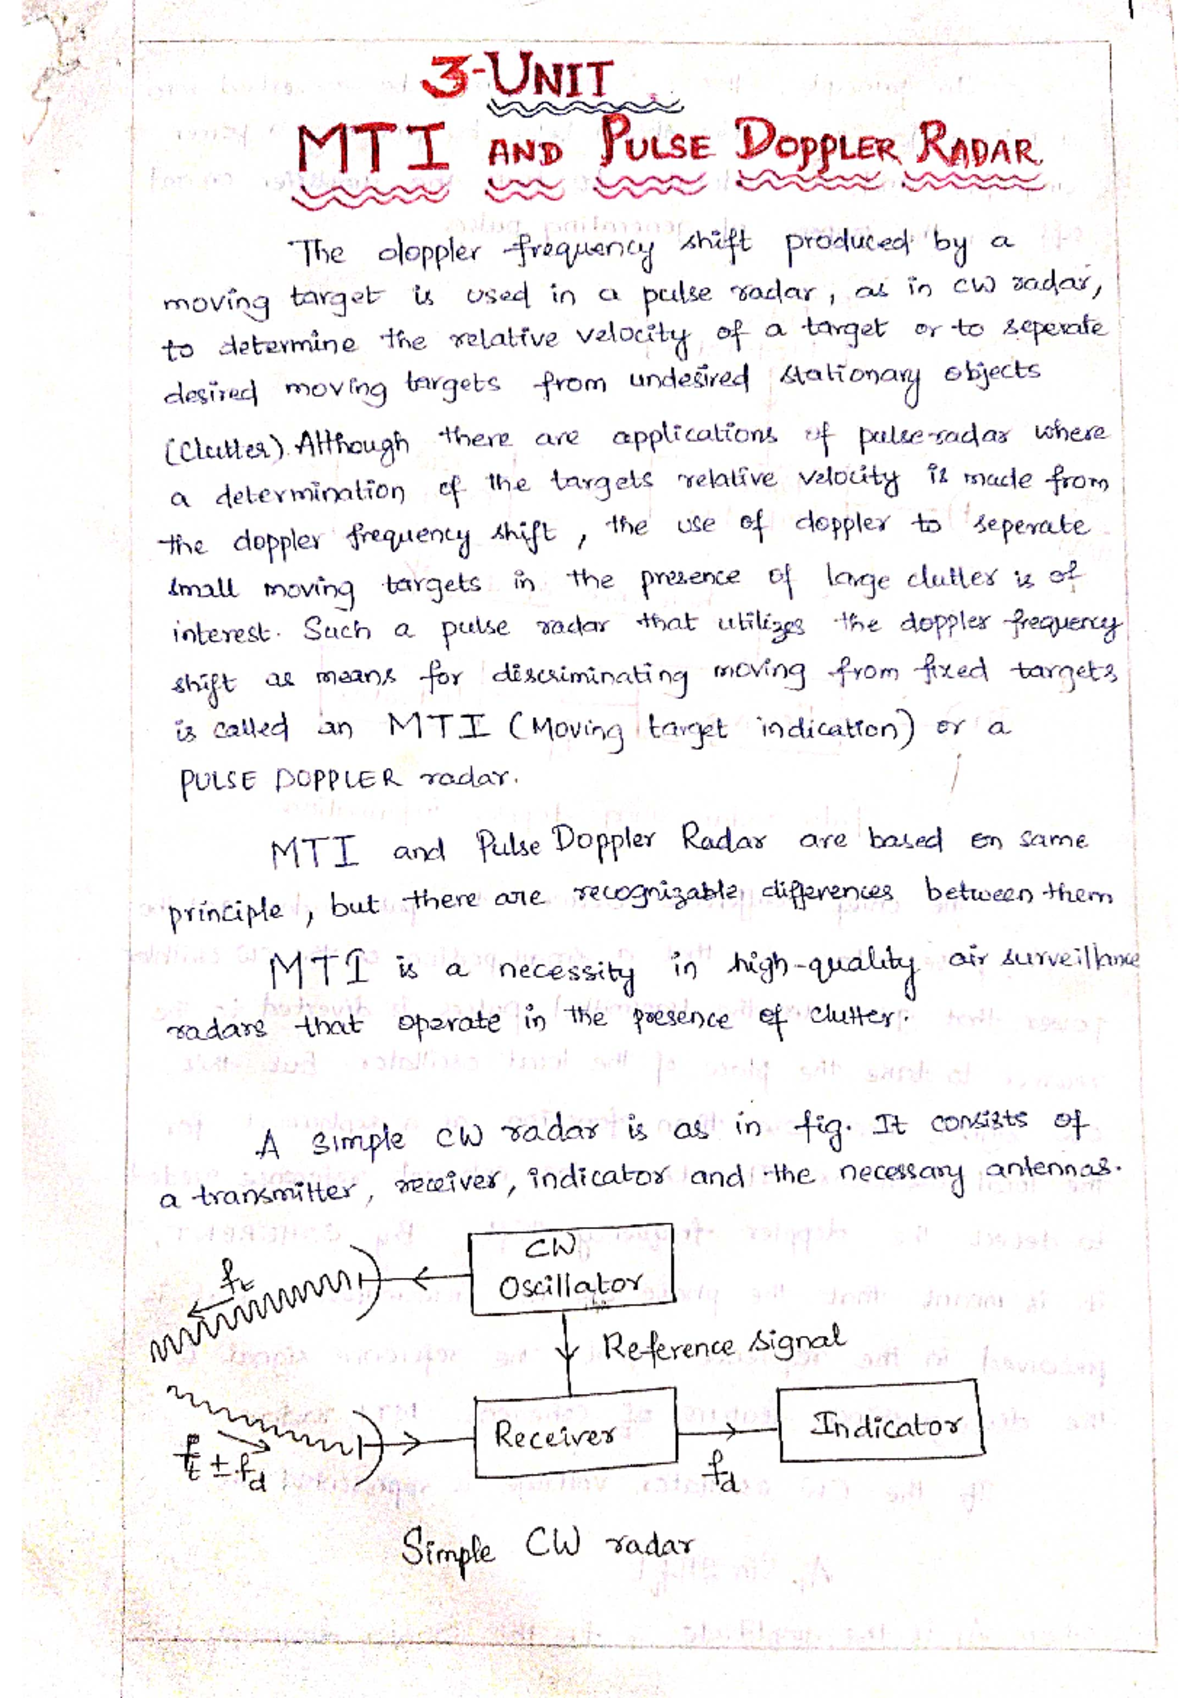 1
3-UNIT
MTI AND PULSE DOPPLER RADAR
The doppler frequency shift produced by a
moving target is used in a pulse radar, as in CW radar,
to determine the relative velocity of a target or to seperate
desired moving targets from undesired stationary objects
(Clutter). Although there are applications of pulse-radar where
a determination of the targets relative velocity is made from
the doppler frequency shift, the use of doppler to seperate
small moving targets in the presence of large clutter is of
interest. Such a pulse radar that utilizes the doppler frequency
shift as means for discriminating moving from fixed targets
is called an MTI (Moving target indication) or a
PULSE DOPPLER radar.
MTI and Pulse Doppler Radar are based on same
principle, but there are recognizable differences between them
MTI is a necessity in high-quality air surveillance
radars that operate in the presence of clutter.
A simple CW radar is as in fig. It consists of
a transmitter, receiver, indicator and the necessary antennas.
CW
Oscillator
ft
Reference signal
Receiver
Indicator
ft ± fd
fd
Simple CW radar